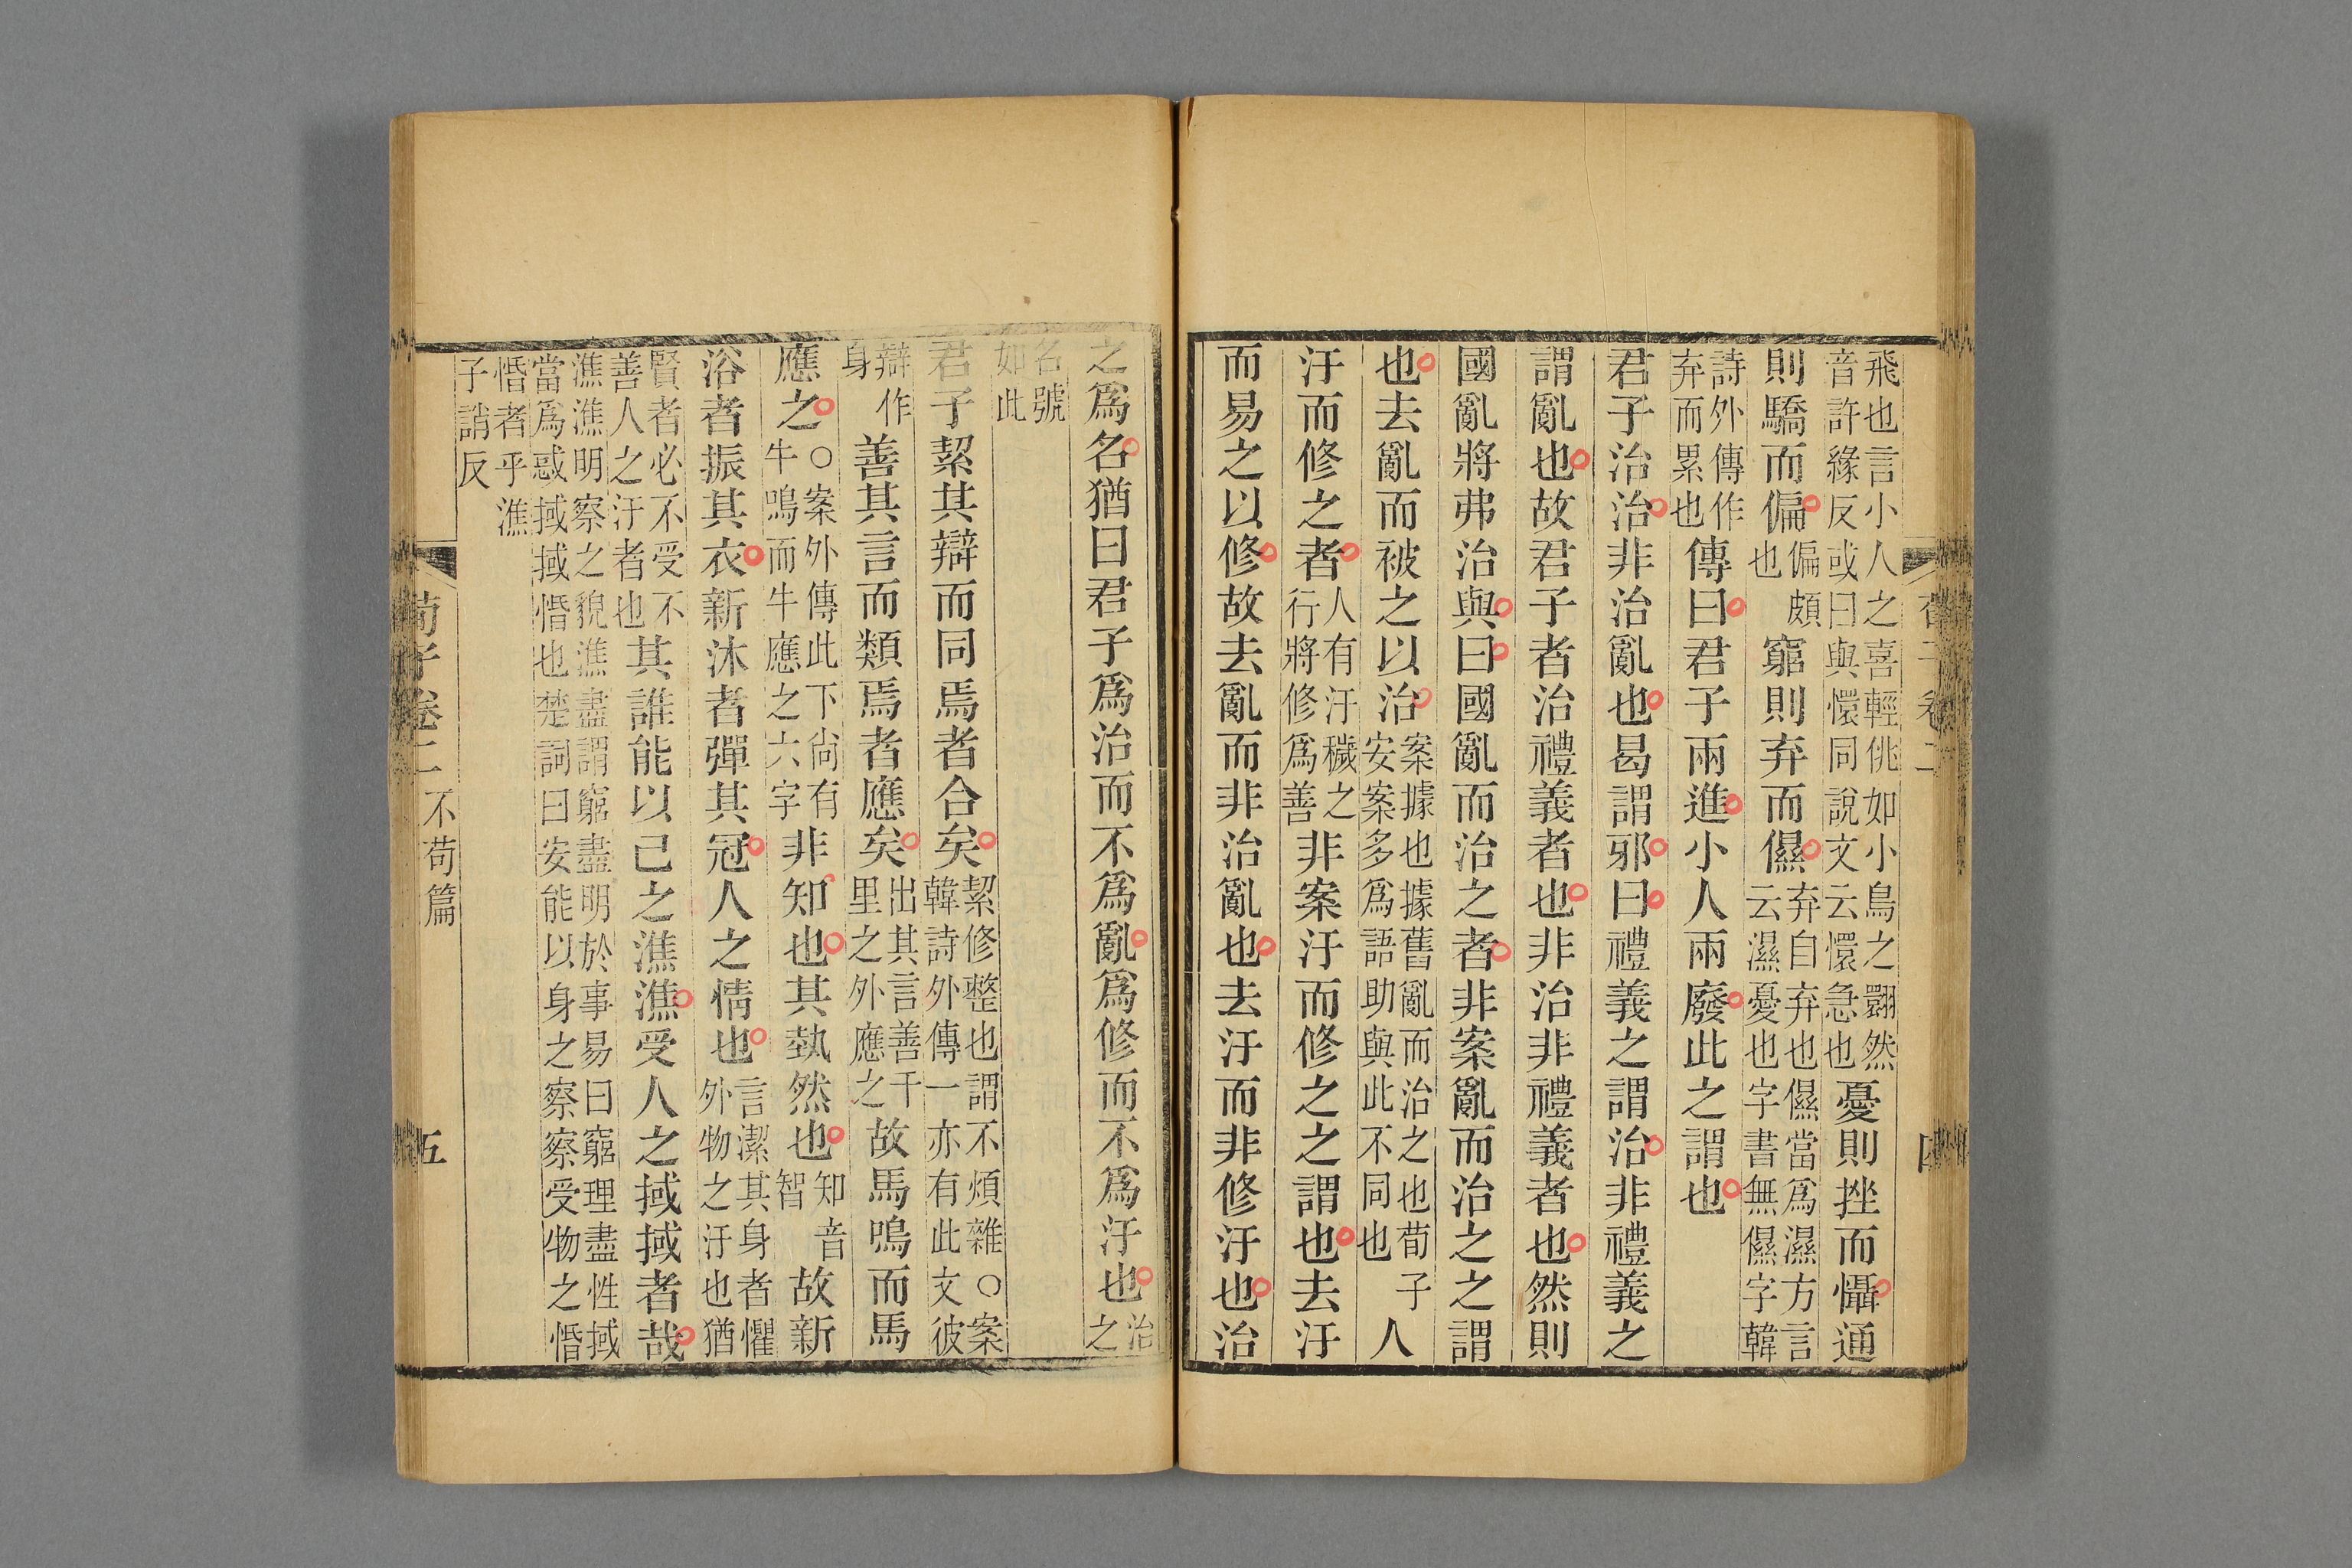 飛也言小人之喜輕佻如小鳥之翾然
音許緣反或曰與懁同說文云懁急也
憂則挫而懾通
則驕而偏
偏頗
也
窮則弃而儑
弃自弃也儑當爲濕方言
云濕憂也字書無儑字韓
詩外傳作
弃而累也
傳曰君子兩進小人兩廢此之謂也
君子治治非治亂也曷謂邪曰禮義之謂治非禮義之
謂亂也故君子者治禮義者也非治非禮義者也然則
國亂將弗治與曰國亂而治之者非案亂而治之之謂
也去亂而被之以治
案據也據舊亂而治之也荀子
安案多爲語助與此不同也
人
汙而修之者
人有汙穢之
行將修爲善
非案汙而修之之謂也去汙
而易之以修故去亂而非治亂也去汙而非修汙也治
荀子卷二
四
之爲名猶曰君子爲治而不爲亂爲修而不爲汙也
治
之
名號
如此
君子絜其辯而同焉者合矣
絜修整也謂不煩雜○案
韓詩外傳一亦有此文彼
辯作
身
善其言而類焉者應矣
出其言善千
里之外應之
故馬鳴而馬
應之
○案外傳此下尙有
牛鳴而牛應之六字
非知也其埶然也
知音
智
故新
浴者振其衣新沐者彈其冠人之情也
言潔其身者懼
外物之汙也猶
賢者必不受不
善人之汙者也
其誰能以己之潐潐受人之掝掝者哉
潐潐明察之貌潐盡謂窮盡明於事易曰窮理盡性掝
當爲惑掝掝惛也楚詞曰安能以身之察察受物之惛
惛者乎潐
子誚反
荀子卷二
不苟篇
五